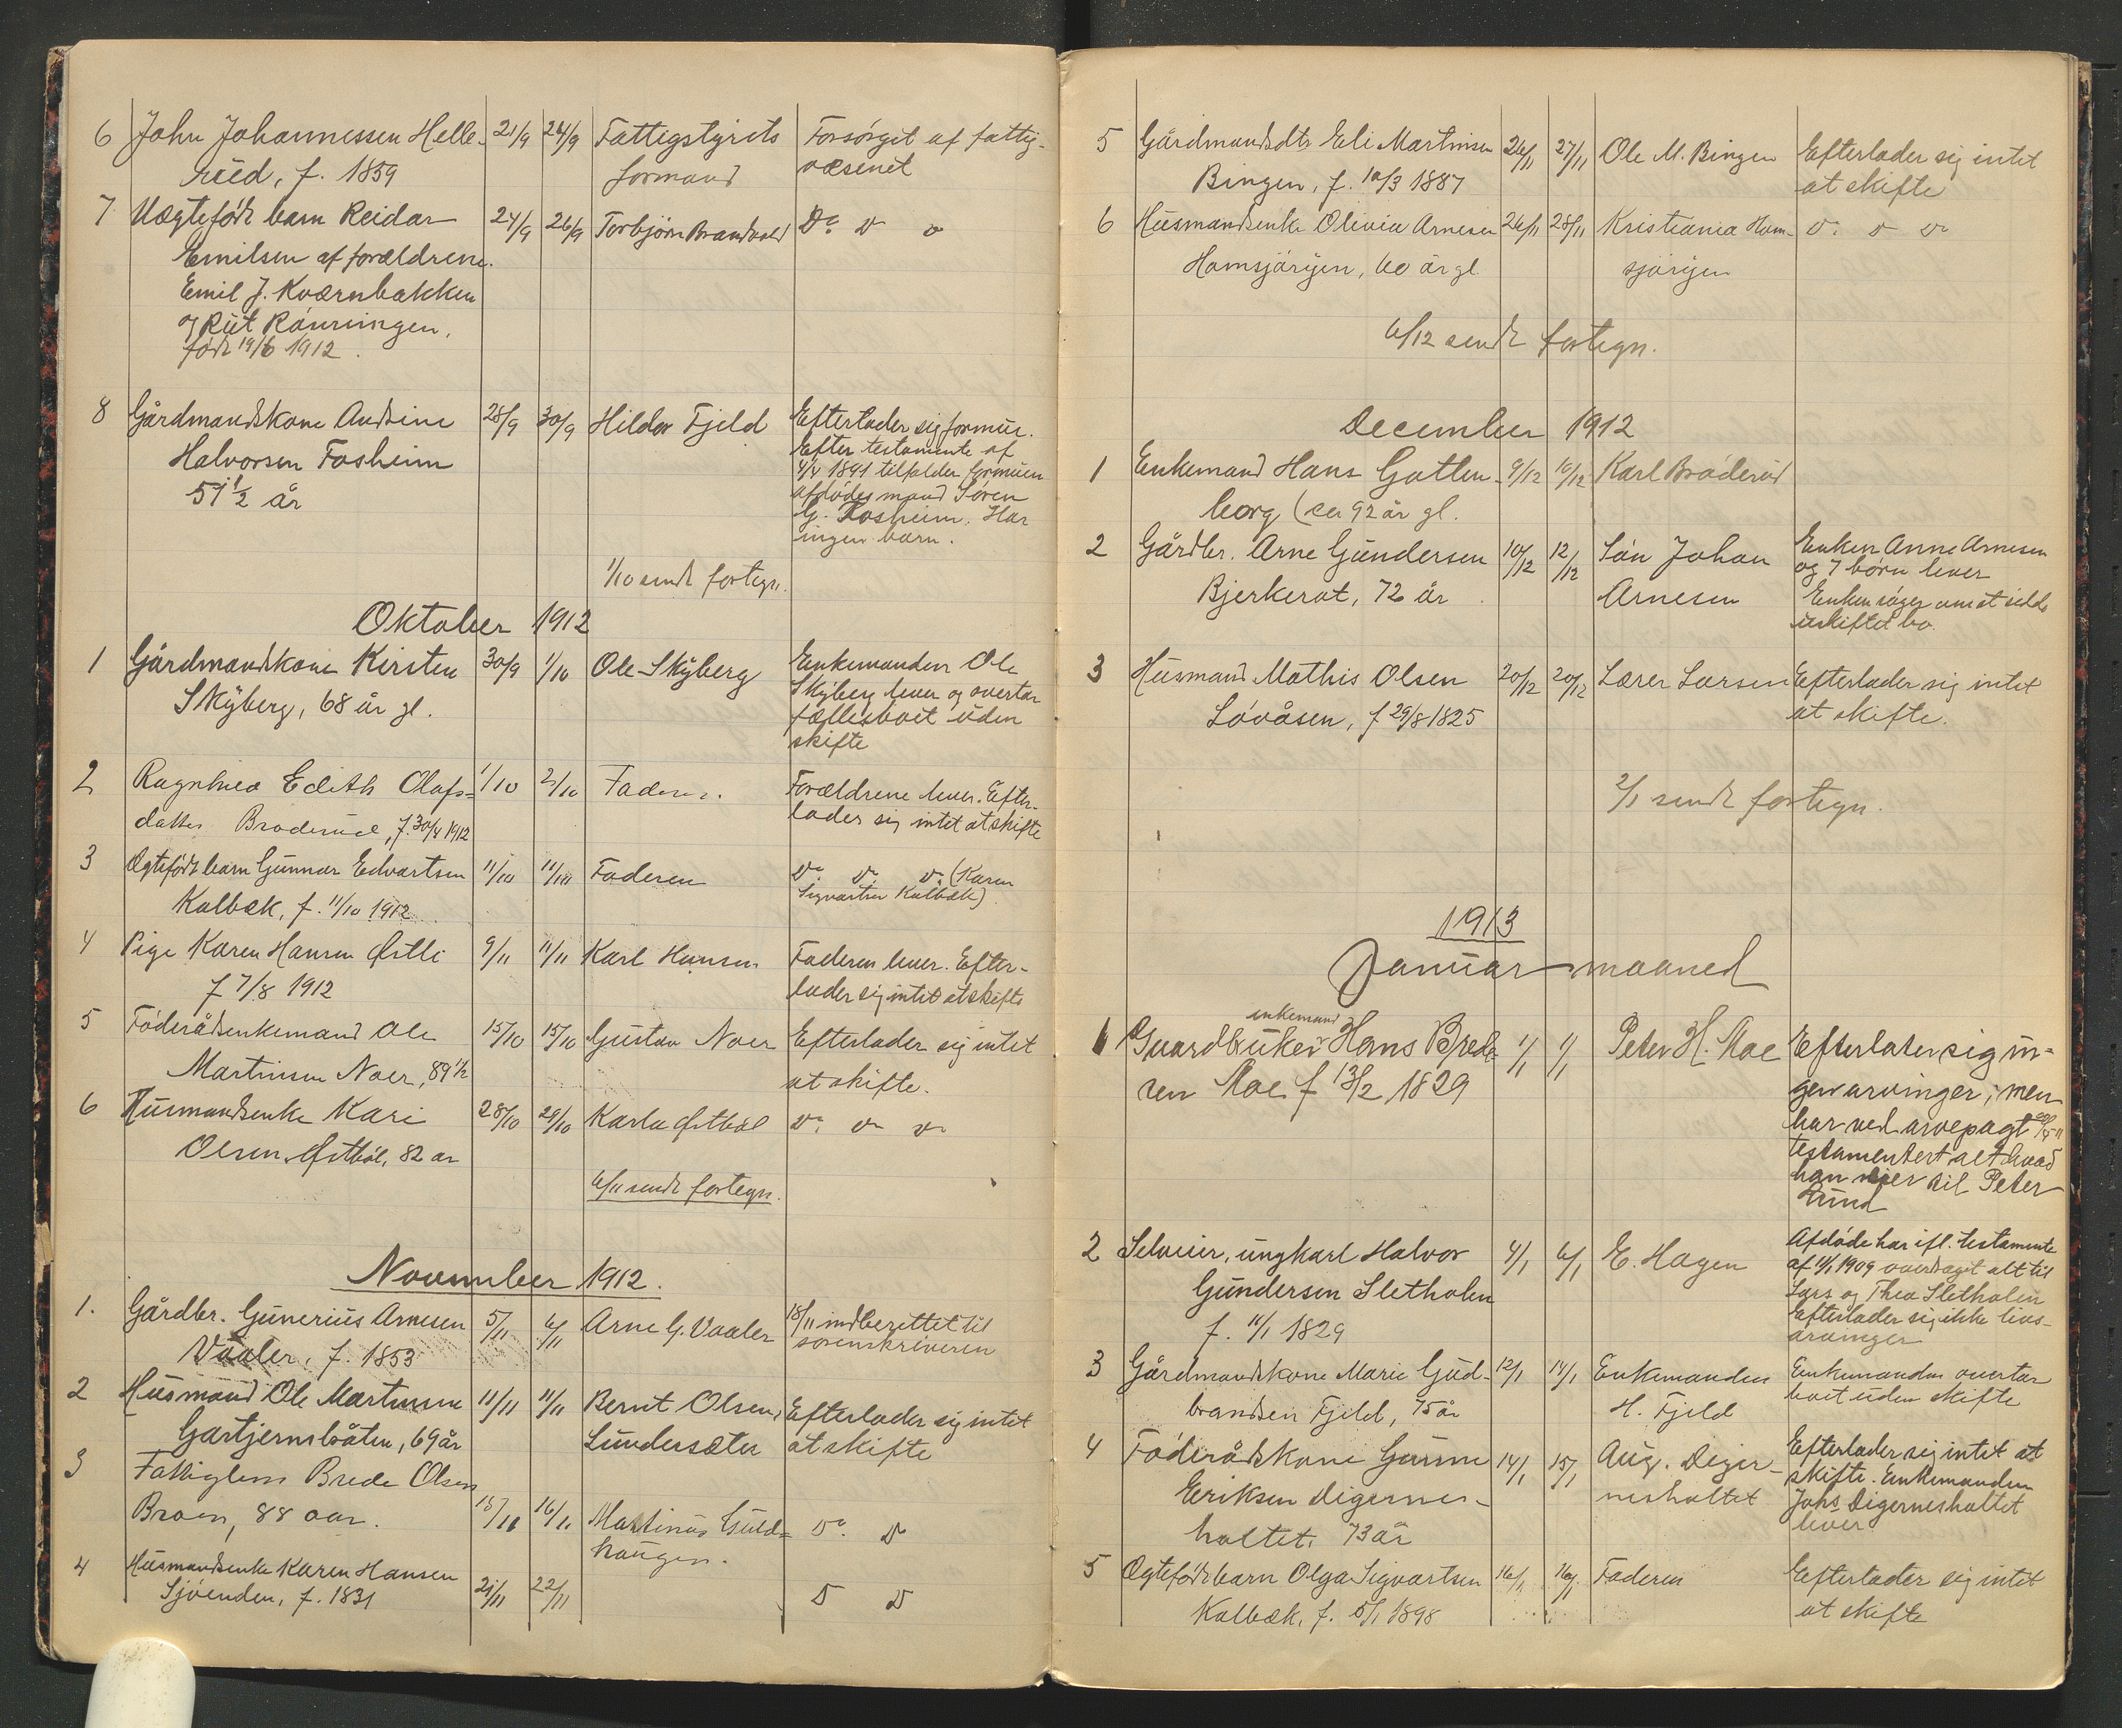 6 John Johannessen Helle- 21/9 24/9 Fattigstyrets Forsörget af fattig-
rud, f. 1859 formand væsenet
7 Uægtefödt barn Reidar 24/9 26/9 Torbjörn Brandvold Do. " "
Emilsen af forældrene
Emil J. Kværnbakken
og Rut Rönningen,
född 19/6 1912.
8 Gårdmandskone Andrine 28/9 30/9 Hildor Fjeld Efterlader sig formue.
Halvorsen Fosheim Efter testamente af
51 1/2 år 4/4 1891 tilfalder formuen
afdödes mand Sören
G. Fosheim. Har
ingen barn.
1/10 sendt fortegn.
Oktober 1912
1 Gårdmandskone Kirsten 30/9 1/10 Ole Skyberg Enkemanden Ole
Skyberg, 68 år gl. Skyberg lever og overtar
fællesboet uden
skifte
2 Ragnhild Edith Olafs- 1/10 2/10 Faderen. Forældrene lever. Efter-
datter Broderud, f. 30/4 1912 lader sig intet at skifte
3 Ægtefödt barn Gunnar Edvartsen 11/10 11/10 Faderen Do Do Do. (Karen
Kalbæk, f. 11/10 1912. Sigvartsen Kalbæk)
4 Pige Karen Hansen Østli 9/11 11/11 Karl Hansen Faderen lever. Efter-
f 7/8 1912 lader sig intet at skifte
5 Föderådsenkemand Ole 15/10 15/10 Gustav Noer Efterlader sig intet
Martinsen Noer, 89 1/2 at skifte.
6 Husmandsenke Kari 28/10 29/10 Karla Østböl Do. Do Do
Olsen Østböl, 82 år
6/11 sendt fortegn.
November 1912.
1. Gårdbr. Gunerius Arnesen 5/11 6/11 Arne G. Vaaler 18/11 indberettet til
Vaaler, f. 1853 sorenskriveren
2 Husmand Ole Martinsen 11/11 11/11 Bernt Olsen, Efterlader sig intet
Gartjernsbråten, 69 år Lundersæter at skifte
3 Fattiglem Brede Olsen
Broen, 88 aar. 15/11 16/11 Martinus Guld- Do. Do
haugen.
4 Husmandsenke Karen Hansen 21/11 22/11
Sjöenden, f. 1831 D D
5 Gårdmandsdtr Eli Martinsen 26/11 27/11 Ole M. Bingen Efterlader sig intet
Bingen, f. 10/3 1887 at skifte
6 Husmandsenke Olivia Arnesen 26/11 28/11 Kristiania Ham- Do. Do Do
Hamsjöryen, 60 år gl. sjöryen
6/12 sendt fortegn.
December 1912
1 Enkemand Hans Gotten- 9/12 10/12 Karl Bröderud
borg (ca 92 år gl.
2 Gårdbr. Arne Gundersen 10/12 12/12 Sön Johan Enken Anne Arnesen
Bjerkerot, 72 år Arnesen og 7 börn lever
Enken söger om at sidde
i uskiftet bo
3 Husmand Mathis Olsen 20/12 20/12 Lærer Larsen Efterlader sig intet
Lövåsen, f 29/8 1825 at skifte.
2/1 sendt fortegn.
1913
Januar maaned
enkemand
1 Guardbruker Hans Brede- 1/1 1/1 Peter H. Moe Efterlater sig in-
sen Moe f 13/2 1829 gen arvinger; men
har ved arvepagt
testamentert alt hvad
han eier til Peter
Lund
2 Selveier, ungkarl Halvor 4/1 6/1 E. Hagen Afdöde har ifl. testamente
Gundersen Sletholen af 11/1 1909 overdraget alt til
f. 11/1 1829 Lars og Thea Sletholen
Efterlader sig ikke livs-
arvinger
3 Gårdmandskone Marie Gud- 12/1 14/1 Enkemanden Enkemanden overtar
brandsen Fjeld, 75 år H. Fjeld boet uden skifte
4 Föderådskone Gunne 14/1 15/1 Aug. Diger- Efterlader sig intet at
Eriksen Digernes- nesholtet skifte. Enkemanden
holtet. 73 år Johs Digernesholtet
lever
5 Ægtefödt barn Olga Sigvartsen 16/1 16/1 Faderen Efterlader sig intet
Kalbæk, f. 5/1 1898 at skifte